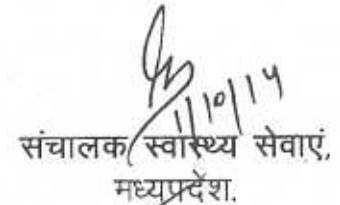 1/10/14
संचालक स्वास्थ्य सेवाएं,
मध्यप्रदेश.